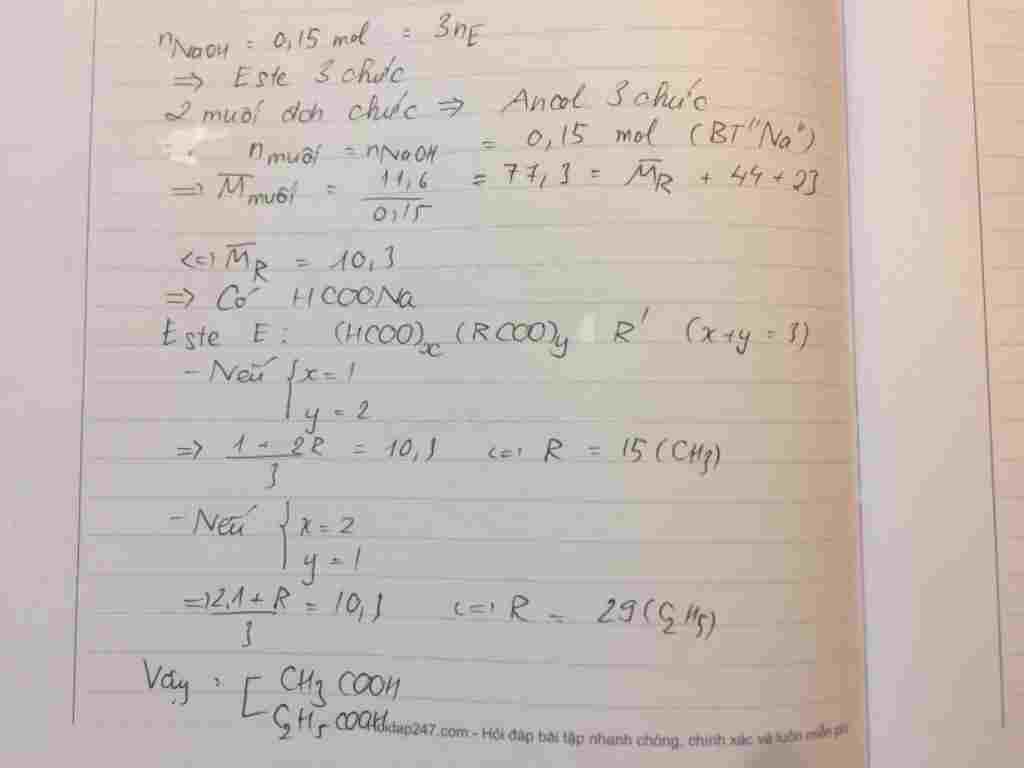 nNaOH = 0,15 mol = 3nE
=> Este 3 chức
2 muối đơn chức => Ancol 3 chức
nmuối = nNaOH = 0,15 mol (BT "Na")
=> M̅muối = 11,6 / 0,15 = 77,3 = M̅R + 44 + 23
<=> M̅R = 10,3
=> Có HCOONa
Este E: (HCOO)x (RCOO)y R' (x+y = 3)
- Nếu { x = 1
y = 2
=> (1 + 2R) / 3 = 10,3 <=> R = 15 (CH3)
- Nếu { x = 2
y = 1
=> (2.1 + R) / 3 = 10,3 <=> R = 29 (C2H5)
Vậy : [ CH3COOH
C2H5COOH
didap247.com - Hỏi đáp bài tập nhanh chóng, chính xác và luôn miễn phí